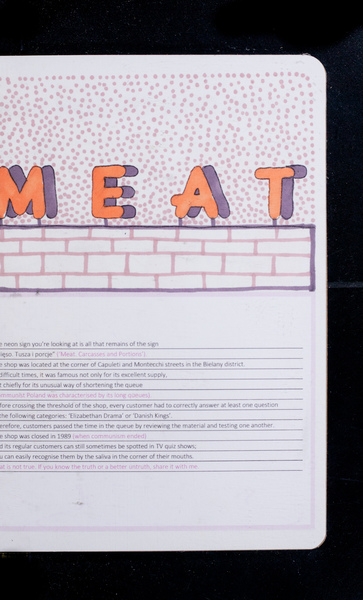 MEAT
e neon sign you're looking at is all that remains of the sign
ięso. Tusza i porcje" ('Meat. Carcasses and Portions').
e shop was located at the corner of Capuleti and Montecchi streets in the Bielany district.
difficult times, it was famous not only for its excellent supply,
t chiefly for its unusual way of shortening the queue
ommunist Poland was characterised by its long queues)
fore crossing the threshold of the shop, every customer had to correctly answer at least one question
the following categories: 'Elizabethan Drama' or 'Danish Kings'.
erefore, customers passed the time in the queue by reviewing the material and testing one another.
e shop was closed in 1989 (when communism ended)
d its regular customers can still sometimes be spotted in TV quiz shows;
u can easily recognise them by the saliva in the corner of their mouths.
at is not true. If you know the truth or a better untruth, share it with me.